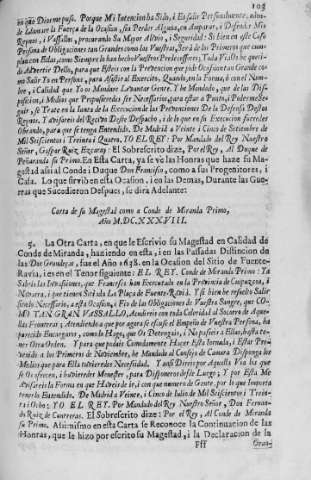 en que Diorme puso. Porque Mi Intencion ha Sido, i Es salir Personalmente, antes
de Llamar la Fuerça de la Ocasion, sin Perder Alguna, en Amparar, i Defender Mis
Reynos, i Vasallos, procurando Su Mayor Alivio, i Seguridad: Si bien en este Caso
Persona de Obligaciones tan Grandes como las Vuestras, Será de los Primeros que cum-
plan con Ellas, como Siempre lo han hecho Vuestros Predecesores; Toda Via he queri-
do Advertir Dello, para que Esteis con la Prevencion que pide Ocasion tan Grande co-
mo Salir Yo en Persona, para Asistir al Exercito, Quando, en la Forma, i con el Nume-
ro, i Calidad que Yo os Mandare Levantar Gente. I he Mandado, que de las Dispo-
siciones, i Medios que Propusieredes ser Necessarios para estar a Punto, i Poderme se-
guir, se Trate en la Junta de la Execucion de las Prevenciones De la Defensa De stos
Reynos. I Avisareis del Recivo Deste Despacho, i de lo que en su Execucion fueredes
Obrando, para que se tenga Entendido. De Madrid a Veinte i Cinco de Setiembre de
Mil Seiscientos i Treinta i Quatro. YO EL REY: Por Mandado del Rey Nuestro
Señor, Gaspar Ruiz Ezcaray. El Sobrescrito dize, Por el Rey, Al Duque de
Peñaranda su Primo. En Esta Carta, ya se ve las Honras que haze su Ma-
gestad asi al Conde i Duque Don Francisco, como a sus Progenitores, i
Casa. Lo que sirvió en esta Ocasion, i en las Demas, Durante las Gue-
rras que Sucedieron Despues, se dira Adelante:
Carta de su Magestad como a Conde de Miranda Primo,
Año M.DC.XXXVIII.
5. La Otra Carta, en que le Escrivio su Magestad en Calidad de
Conde de Miranda, haziendo en esta, i en las Passadas Distincion de
las Dos Grandezas, fue el Año 1638. en la Ocasion del Sitio de Fuente-
Ravia, i es en el Tenor siguiente: EL REY. Conde de Miranda Primo: Ya
Sabris las Invasiones, que Franceses han Executado en la Provincia de Guipuzcoa, i
Navarra, i que tienen Sitiada La Plaça de Fuente-Ravia. Y si bien he resuelto Salir
siendo Necessario, a esta Ocasion, i Fio de las Obligaciones de Vuestra Sangre, que CO-
MO TAN GRAN VASSALLO, Acudireis con toda Celeridad al Socorro de Aque-
llas Fronteras; Atendiendo a que por agora se escuse el Empeño de Vuestra Persona, ha
parecido Encargaros, como lo Hago, que Os Detengais, i No paseis a Ellas, hasta te-
ner Otra Orden. Y para que podais Comodamente Hacer Esta Iornada, i Estar Pre-
venido a los Primeros de Noviembre, he Mandado al Consejo de Camara Disponga los
Medios que para Ella tuvieredes Necesidad. Y assi Direis por Aquella Via lo que
se Os ofreciere, i huvieredes Menester, para Disponerse desde Luego; Y por Esta Me
Avisareis la Forma en que Haveis de ir, i con que numero de Gente, por lo que Importa
tenerlo Entendido. De Madrid a Veinte, i Cinco de Iulio de Mil Seiscientos i Trein-
ta i Ocho: YO EL REY. Por Mandado del Rey Nuestro Señor, Don Fernan-
do Ruiz de Contreras. El Sobrescrito dize: Por el Rey, Al Conde de Miranda
su Primo. Asimismo en esta Carta se Reconoce la Continuacion de las
Honras, que le hizo por escrito su Magestad, i la Declaracion de la
Fff
Gran-